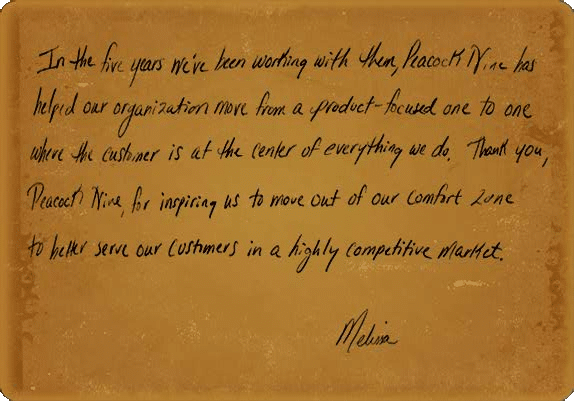 In the five years we've been working with them, Peacock Nine has
helped our organization move from a product-focused one to one
where the customer is at the center of everything we do. Thank you,
Peacock Nine, for inspiring us to move out of our comfort zone
to better serve our customers in a highly competitive market.
Melissa